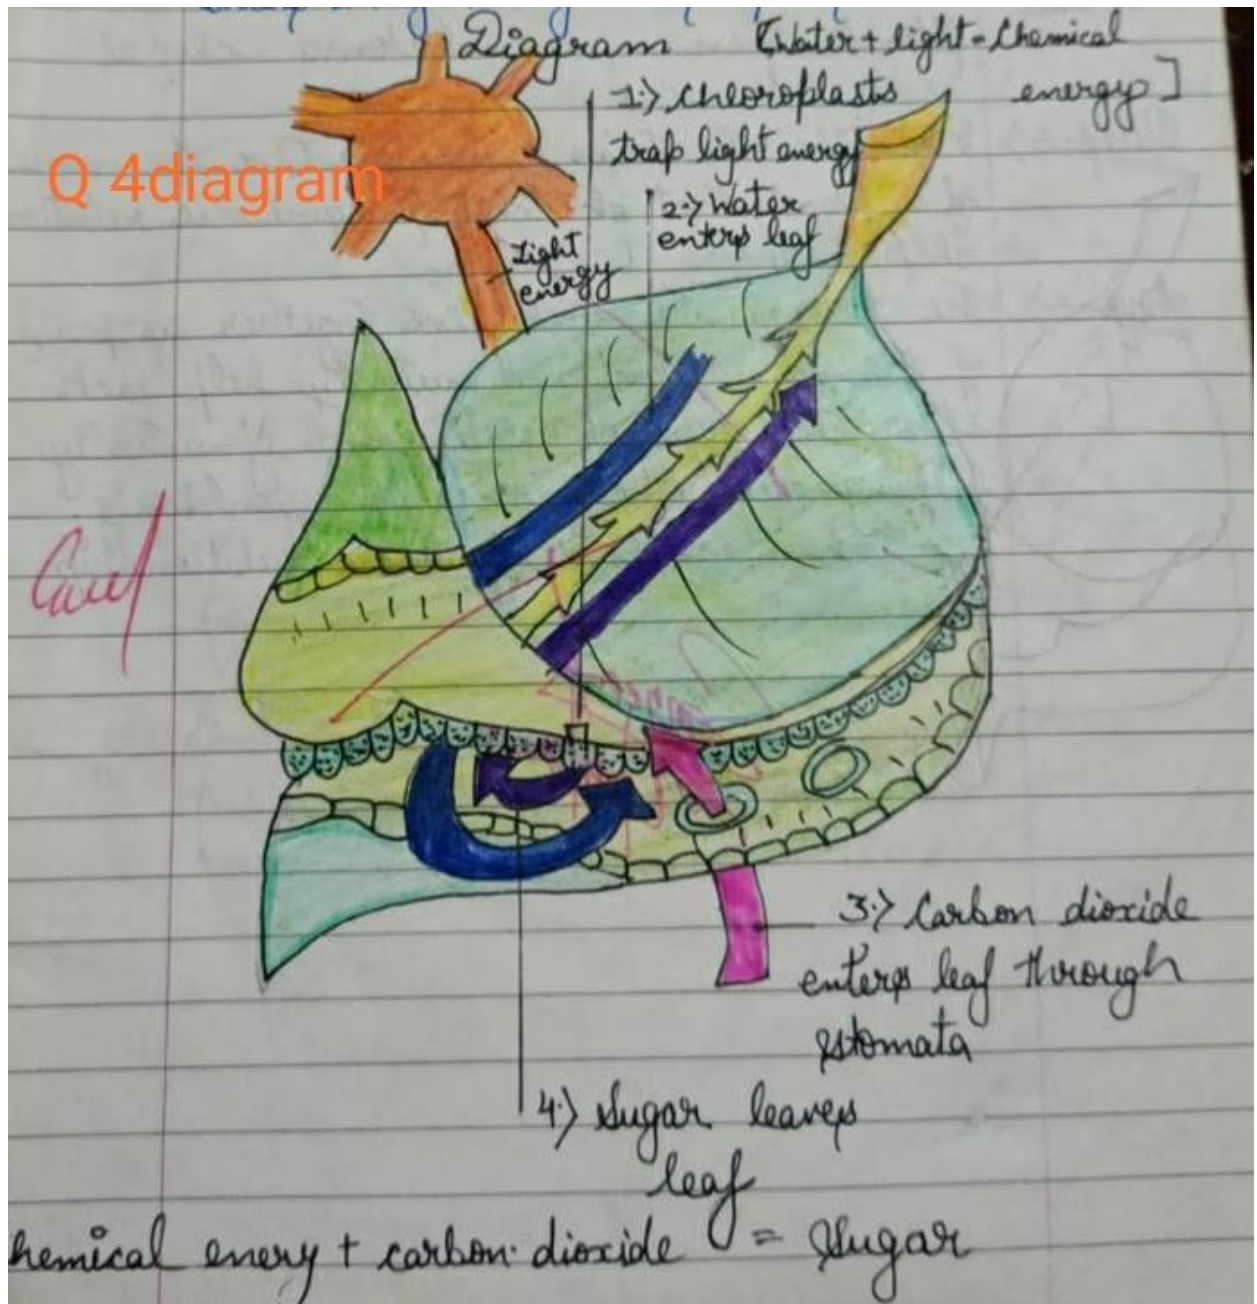 Diagram [Water + light = Chemical
energy]
1.) Chloroplasts
trap light energy
Q 4diagram
2.) Water
enters leaf
Light
energy
3.) Carbon dioxide
enters leaf through
stomata
4.) Sugar leaves
leaf
hemical enery + carbon dioxide = Sugar